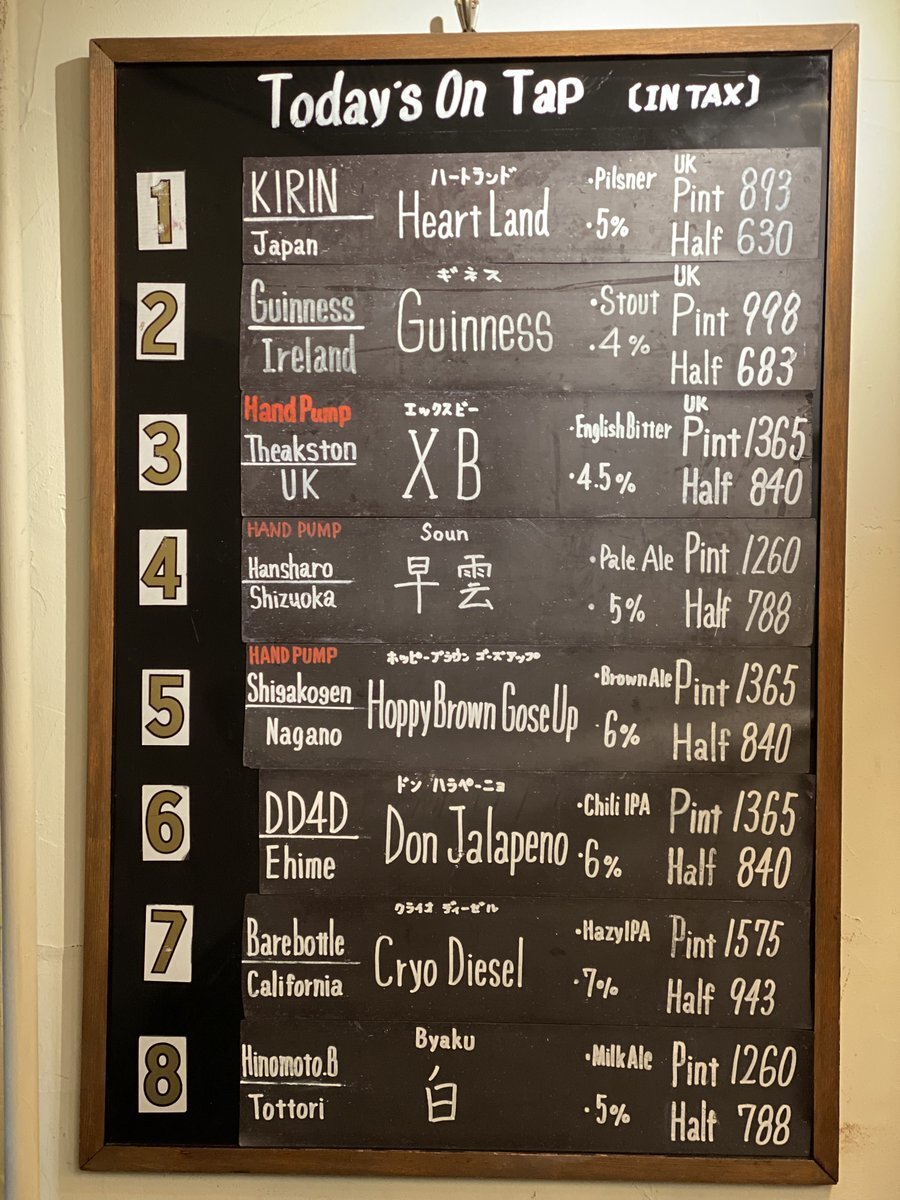 Today's On Tap (IN TAX)
1
KIRIN
Japan
ハートランド
Heart Land
・Pilsner
・5%
UK
Pint 893
Half 630
2
Guinness
Ireland
ギネス
Guinness
・Stout
・4%
UK
Pint 998
Half 683
3
Hand Pump
Theakston
UK
エックスビー
XB
・English Bitter
・4.5%
UK
Pint 1365
Half 840
4
HAND PUMP
Hansharo
Shizuoka
Soun
早雲
・Pale Ale
・5%
Pint 1260
Half 788
5
HAND PUMP
Shigakogen
Nagano
ホッピーブラウン ゴーズアップ
Hoppy Brown Gose Up
・Brown Ale
・6%
Pint 1365
Half 840
6
DD4D
Ehime
ドン ハラペーニョ
Don Jalapeno
・Chili IPA
・6%
Pint 1365
Half 840
7
Barebottle
California
クライオ ディーゼル
Cryo Diesel
・Hazy IPA
・7%
Pint 1575
Half 943
8
Hinomoto.B
Tottori
Byaku
白
・Milk Ale
・5%
Pint 1260
Half 788